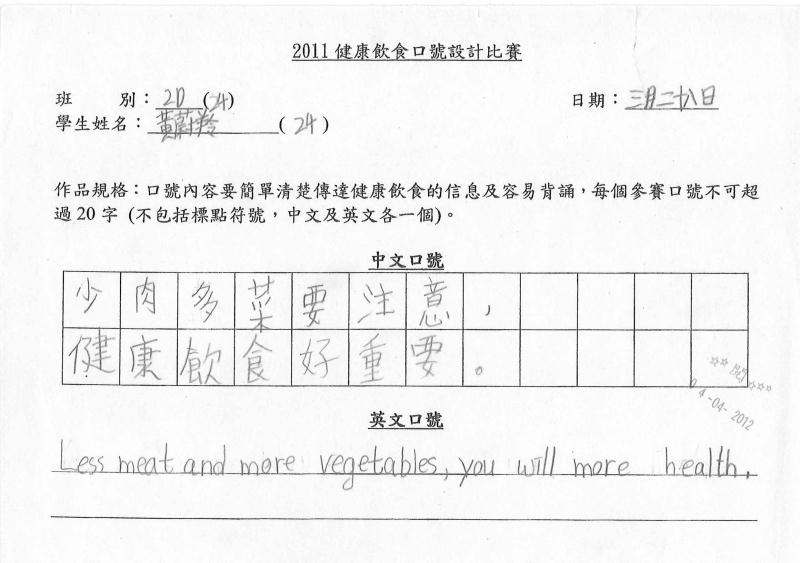 2011健康飲食口號設計比賽
班 別：2D (24)
日期：三月二十八日
學生姓名：黃蔚羚 (24)
作品規格：口號內容要簡單清楚傳達健康飲食的信息及容易背誦，每個參賽口號不可超
過20字 (不包括標點符號，中文及英文各一個)。
中文口號
少肉多菜要注意，
健康飲食好重要。
04-04-2012
英文口號
Less meat and more vegetables, you will more health.